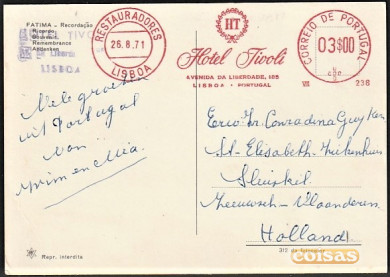 FATIMA - Recordação
Ricordo
Souvenir
Remembrance
Andenken
HOTEL TIVOLI
LISBOA
RESTAURADORES
26.8.71
LISBOA
HT
Hotel Tivoli
AVENIDA DA LIBERDADE, 185
LISBOA - PORTUGAL
CORREIO DE PORTUGAL
03$00
238
Vele groeten
uit Portugal
van
Wim en Mia
St. Elisabeth-Ziekenhuis
Sluiskil
Zeeuwsch-Vlaanderen
Holland
Rep. interdite
coisas